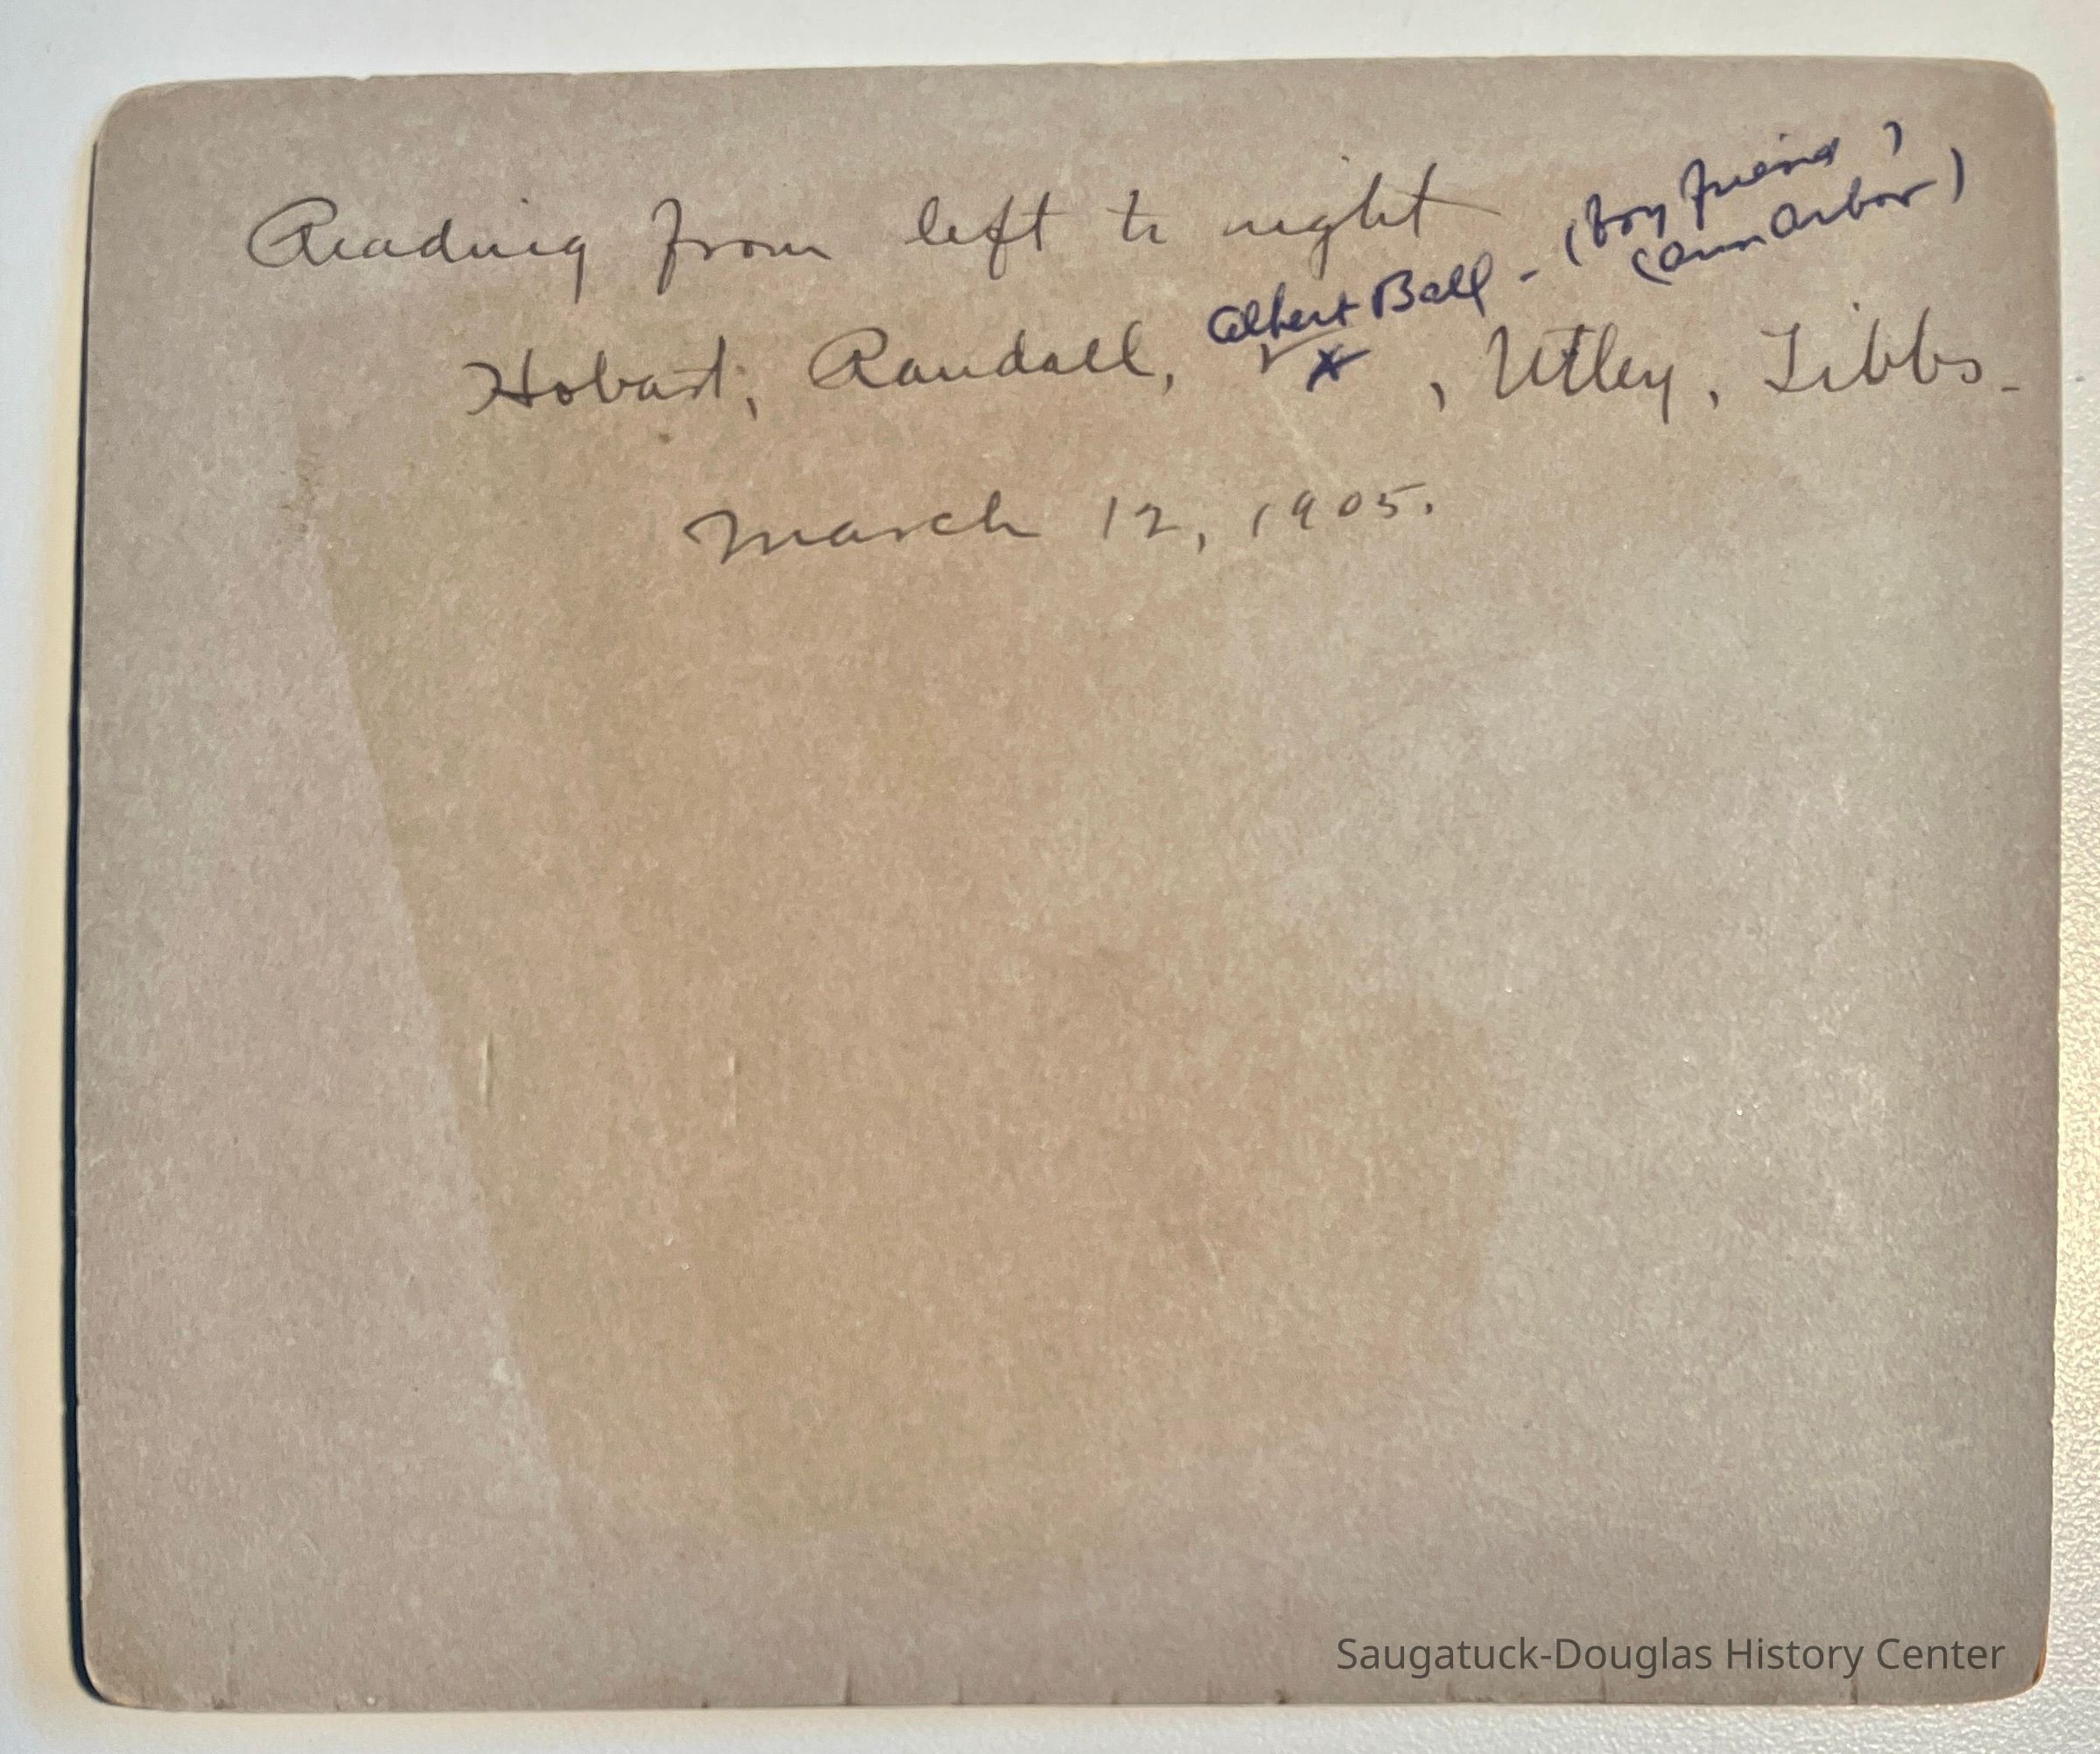 Reading from left to right
Albert Ball - (boy friend)
(Ann Arbor)
Hobart, Randall, x , Utley, Tibbs.
March 12, 1905.
Saugatuck-Douglas History Center